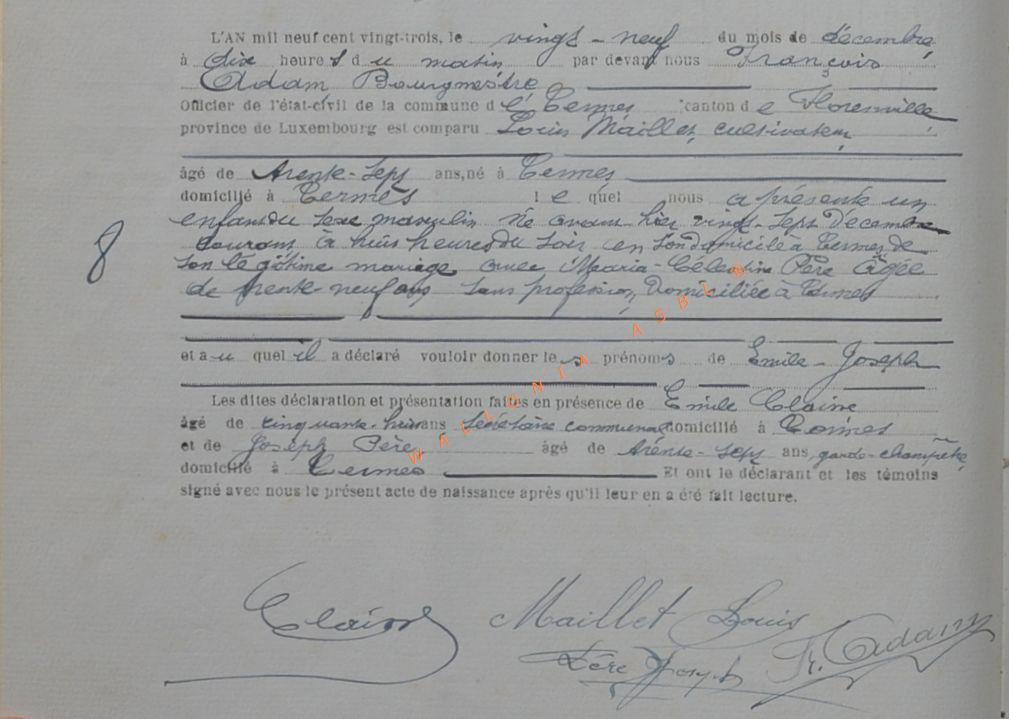 L'AN mil neuf cent vingt-trois, le vingt-neuf du mois de décembre,
à dix heures du matin par devant nous François
Adam Bourgmestre,
Officier de l'état-civil de la commune de Termes canton de Florenville
province de Luxembourg est comparu Louis Maillet, cultivateur,
âgé de trente-sept ans, né à Termes
domicilié à Termes lequel nous a présenté un
enfant du sexe masculin né avant hier vingt-sept décembre
courant à huit heures du soir en son domicile à Termes de
son légitime mariage avec Maria-Célestine Père âgée
de trente neuf ans sans profession, domiciliée à Termes
8
et auquel il a déclaré vouloir donner les prénoms de Emile-Joseph
Les dites déclaration et présentation faites en présence de Emile Claine
âgé de cinquante-huit ans secrétaire communal domicilié à Termes
et de Joseph Père âgé de trente-sept ans, garde-champêtre,
domicilié à Termes Et ont le déclarant et les témoins
signé avec nous le présent acte de naissance après qu'il leur en a été fait lecture.
WALLONIA ASBL ©
Claine Maillet Louis
Père Joseph Fr. Adam